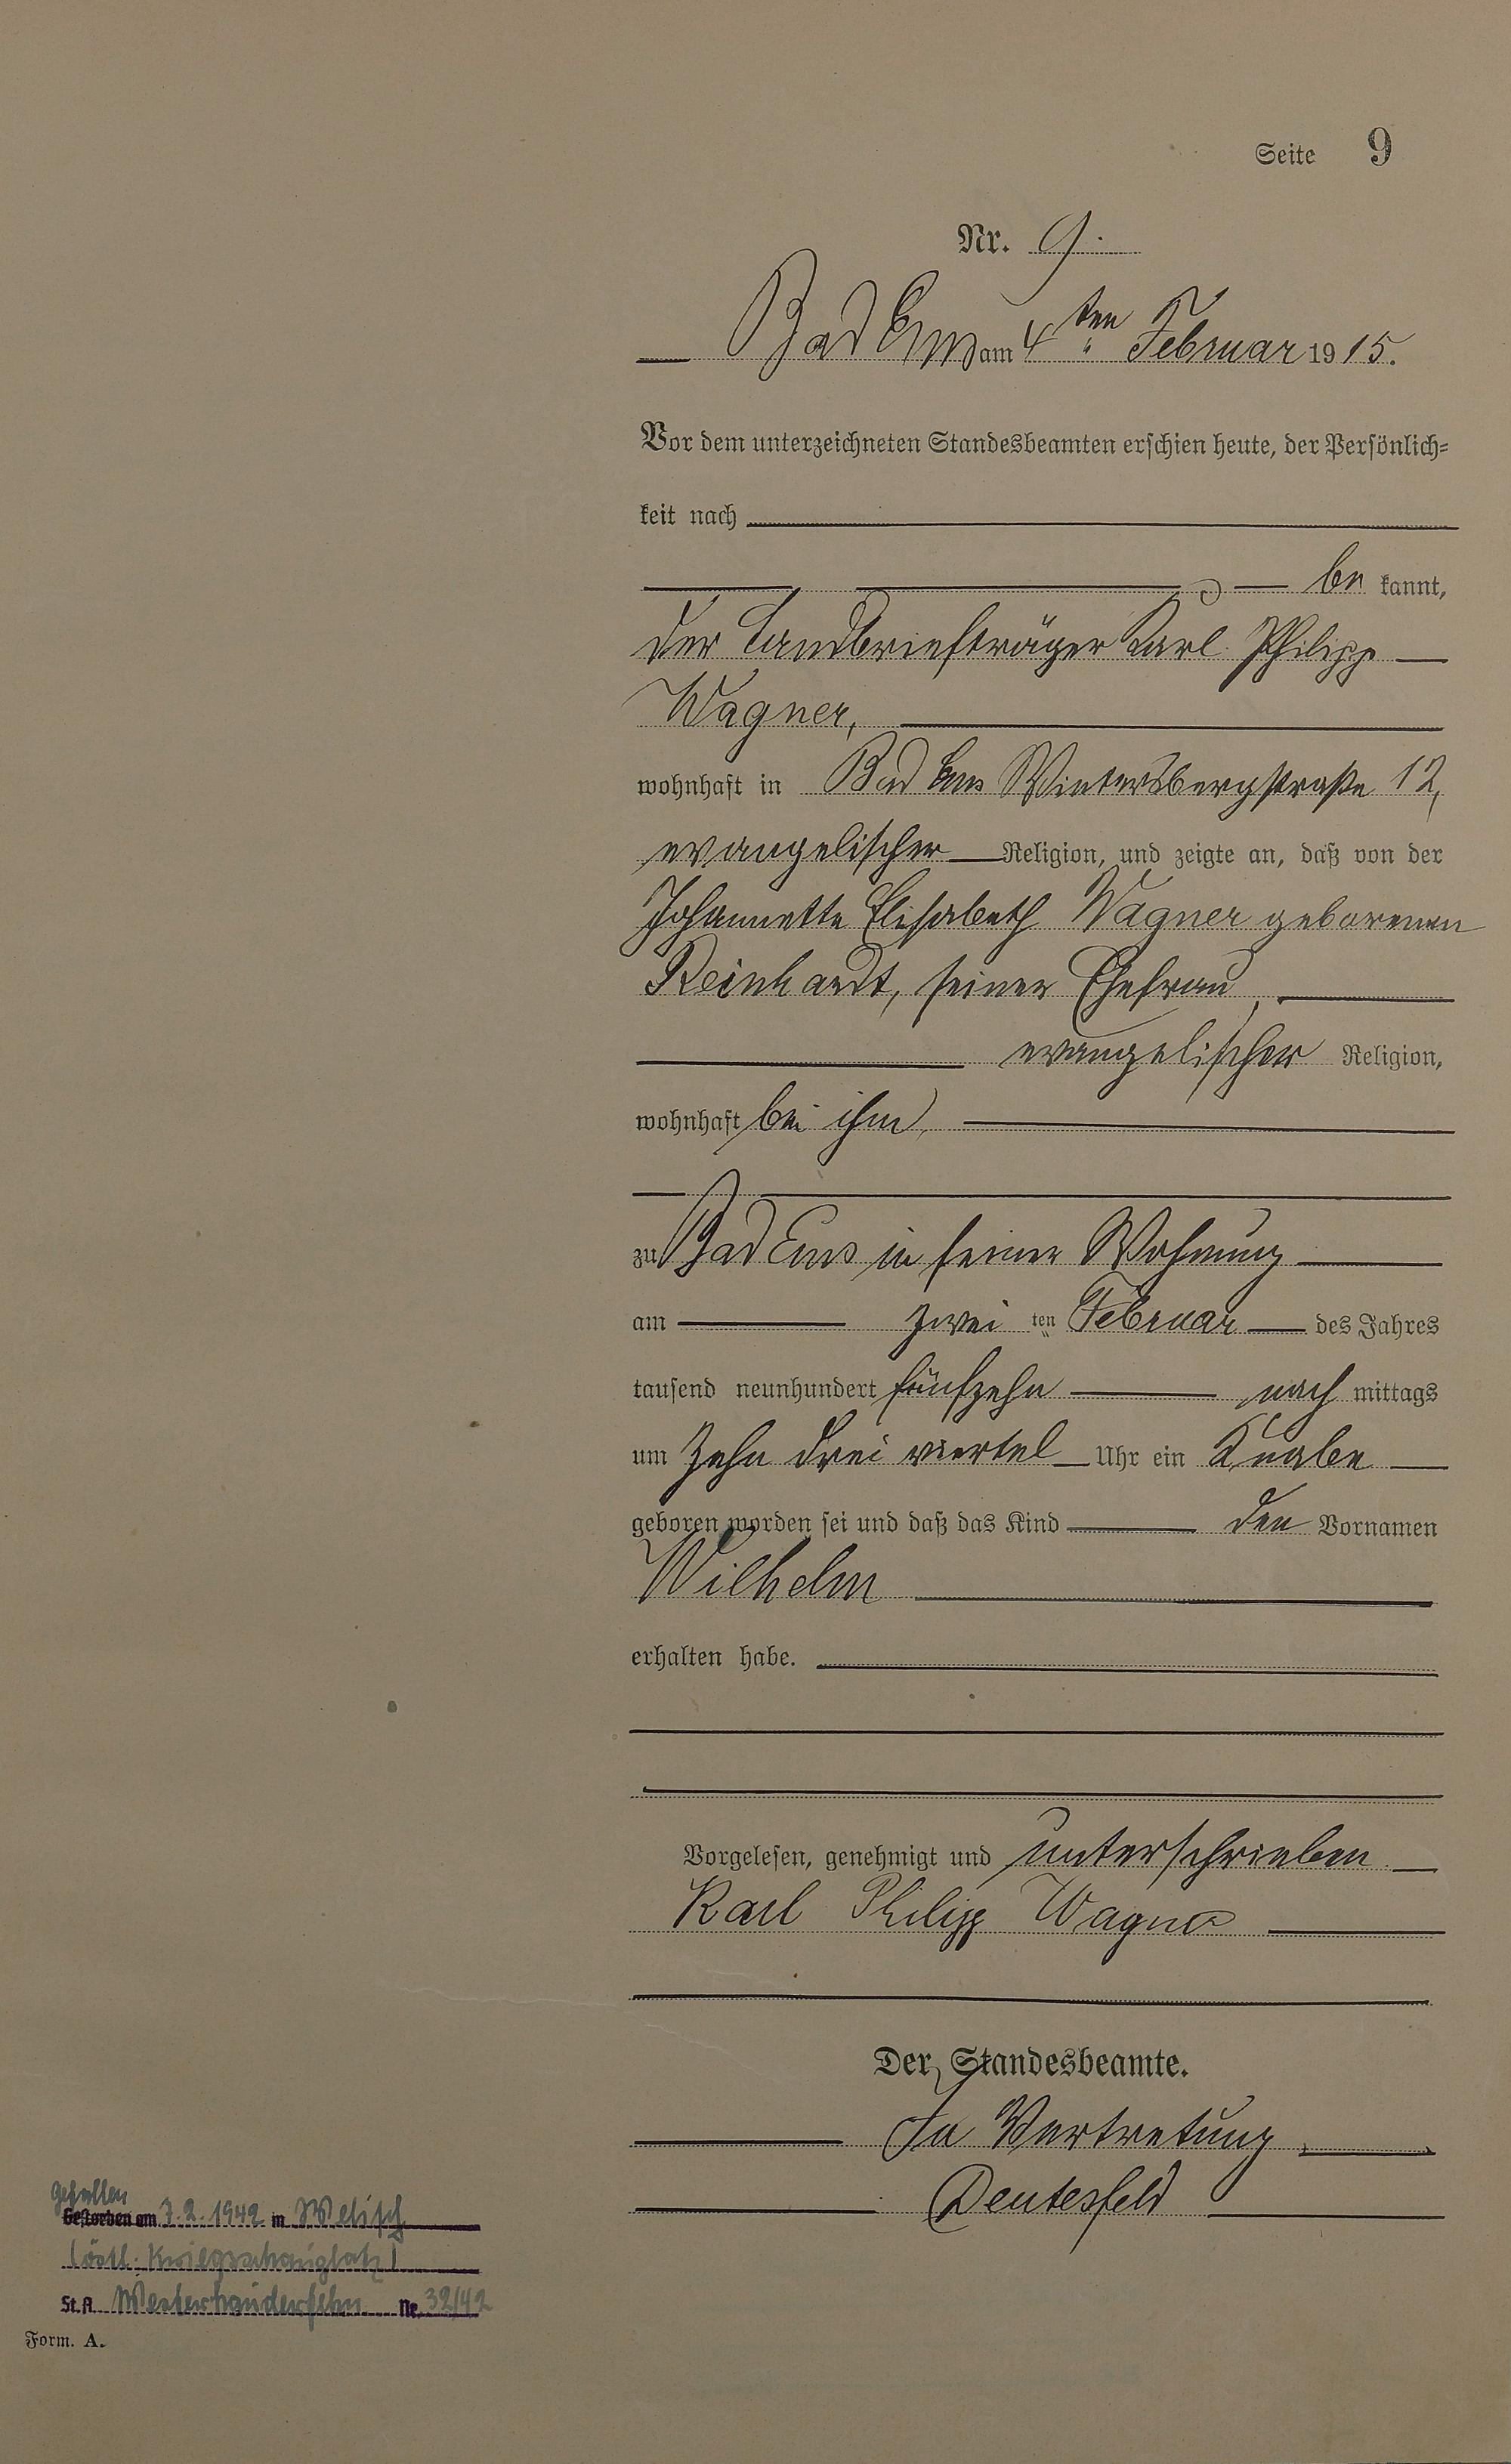 Seite 9
Nr. 9.
Bad Ems am 4ten Februar 1915.
Vor dem unterzeichneten Standesbeamten erschien heute, der Persönlich=
keit nach
be kannt,
der Landbriefträger Karl Philipp
Wagner,
wohnhaft in Bad Ems Wintersbergstraße 12,
evangelischer Religion, und zeigte an, daß von der
Johannette Elisabeth Wagner geborenen
Reinhardt, seiner Ehefrau,
evangelischer Religion,
wohnhaft bei ihm,
zu Bad Ems in seiner Wohnung
am zwei ten Februar des Jahres
tausend neunhundert fünfzehn nach mittags
um zehn drei viertel Uhr ein Knabe
geboren worden sei und daß das Kind den Vornamen
Wilhelm
erhalten habe.
Vorgelesen, genehmigt und unterschrieben
Karl Philipp Wagner
Der Standesbeamte.
In Vertretung
Deutesfeld
Gefallen
Gestorben am 7.2.1942 in Welisch
(östl. Kriegsschauplatz)
St.A. Westerhauderfehn Nr. 32/42
Form. A.